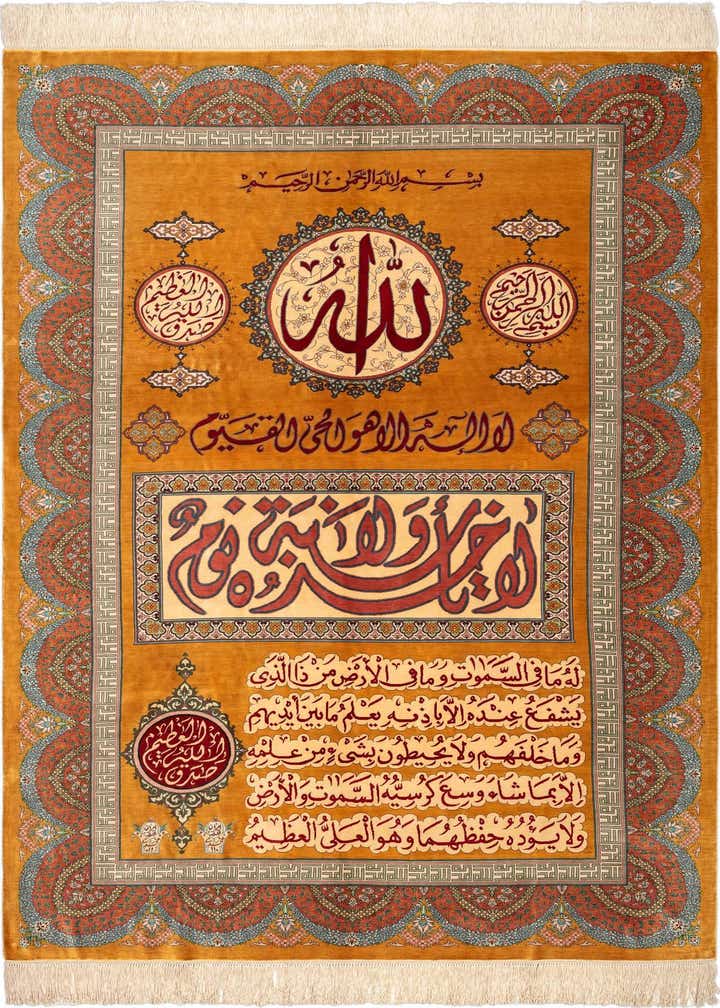 بسم الله الرحمن الرحيم
بسم الله الرحمن الرحيم
اللّٰهُ
صدق الله العلي العظيم
لا اله الا هو الحيّ القيّوم
لا تأخذه سنة ولا نوم
لَهُ مَا فِي السَّمٰوٰتِ وَمَا فِي الْأَرْضِ مَنْ ذَا الَّذِي
يَشْفَعُ عِنْدَهُ اِلَّا بِاِذْنِهِ يَعْلَمُ مَا بَيْنَ أَيْدِيهِمْ
وَمَا خَلْفَهُمْ وَلَا يُحِيطُونَ بِشَيْءٍ مِنْ عِلْمِهِ
اِلَّا بِمَا شَاءَ وَسِعَ كُرْسِيُّهُ السَّمٰوٰتِ وَالْأَرْضَ
وَلَا يَؤُدُهُ حِفْظُهُمَا وَهُوَ الْعَلِيُّ الْعَظِيمُ
صدق الله العلي العظيم